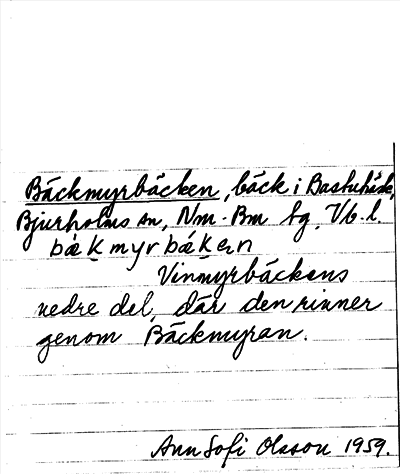 Bäckmyrbäcken, bäck i Bastuhåde,
Bjurholms sn, Nm-Bm tg, Vb. l.
bäkmyrbäkęn
Vinmyrbäckens
nedre del, där den rinner
genom Bäckmyran.
Ann Sofi Olsson 1959.